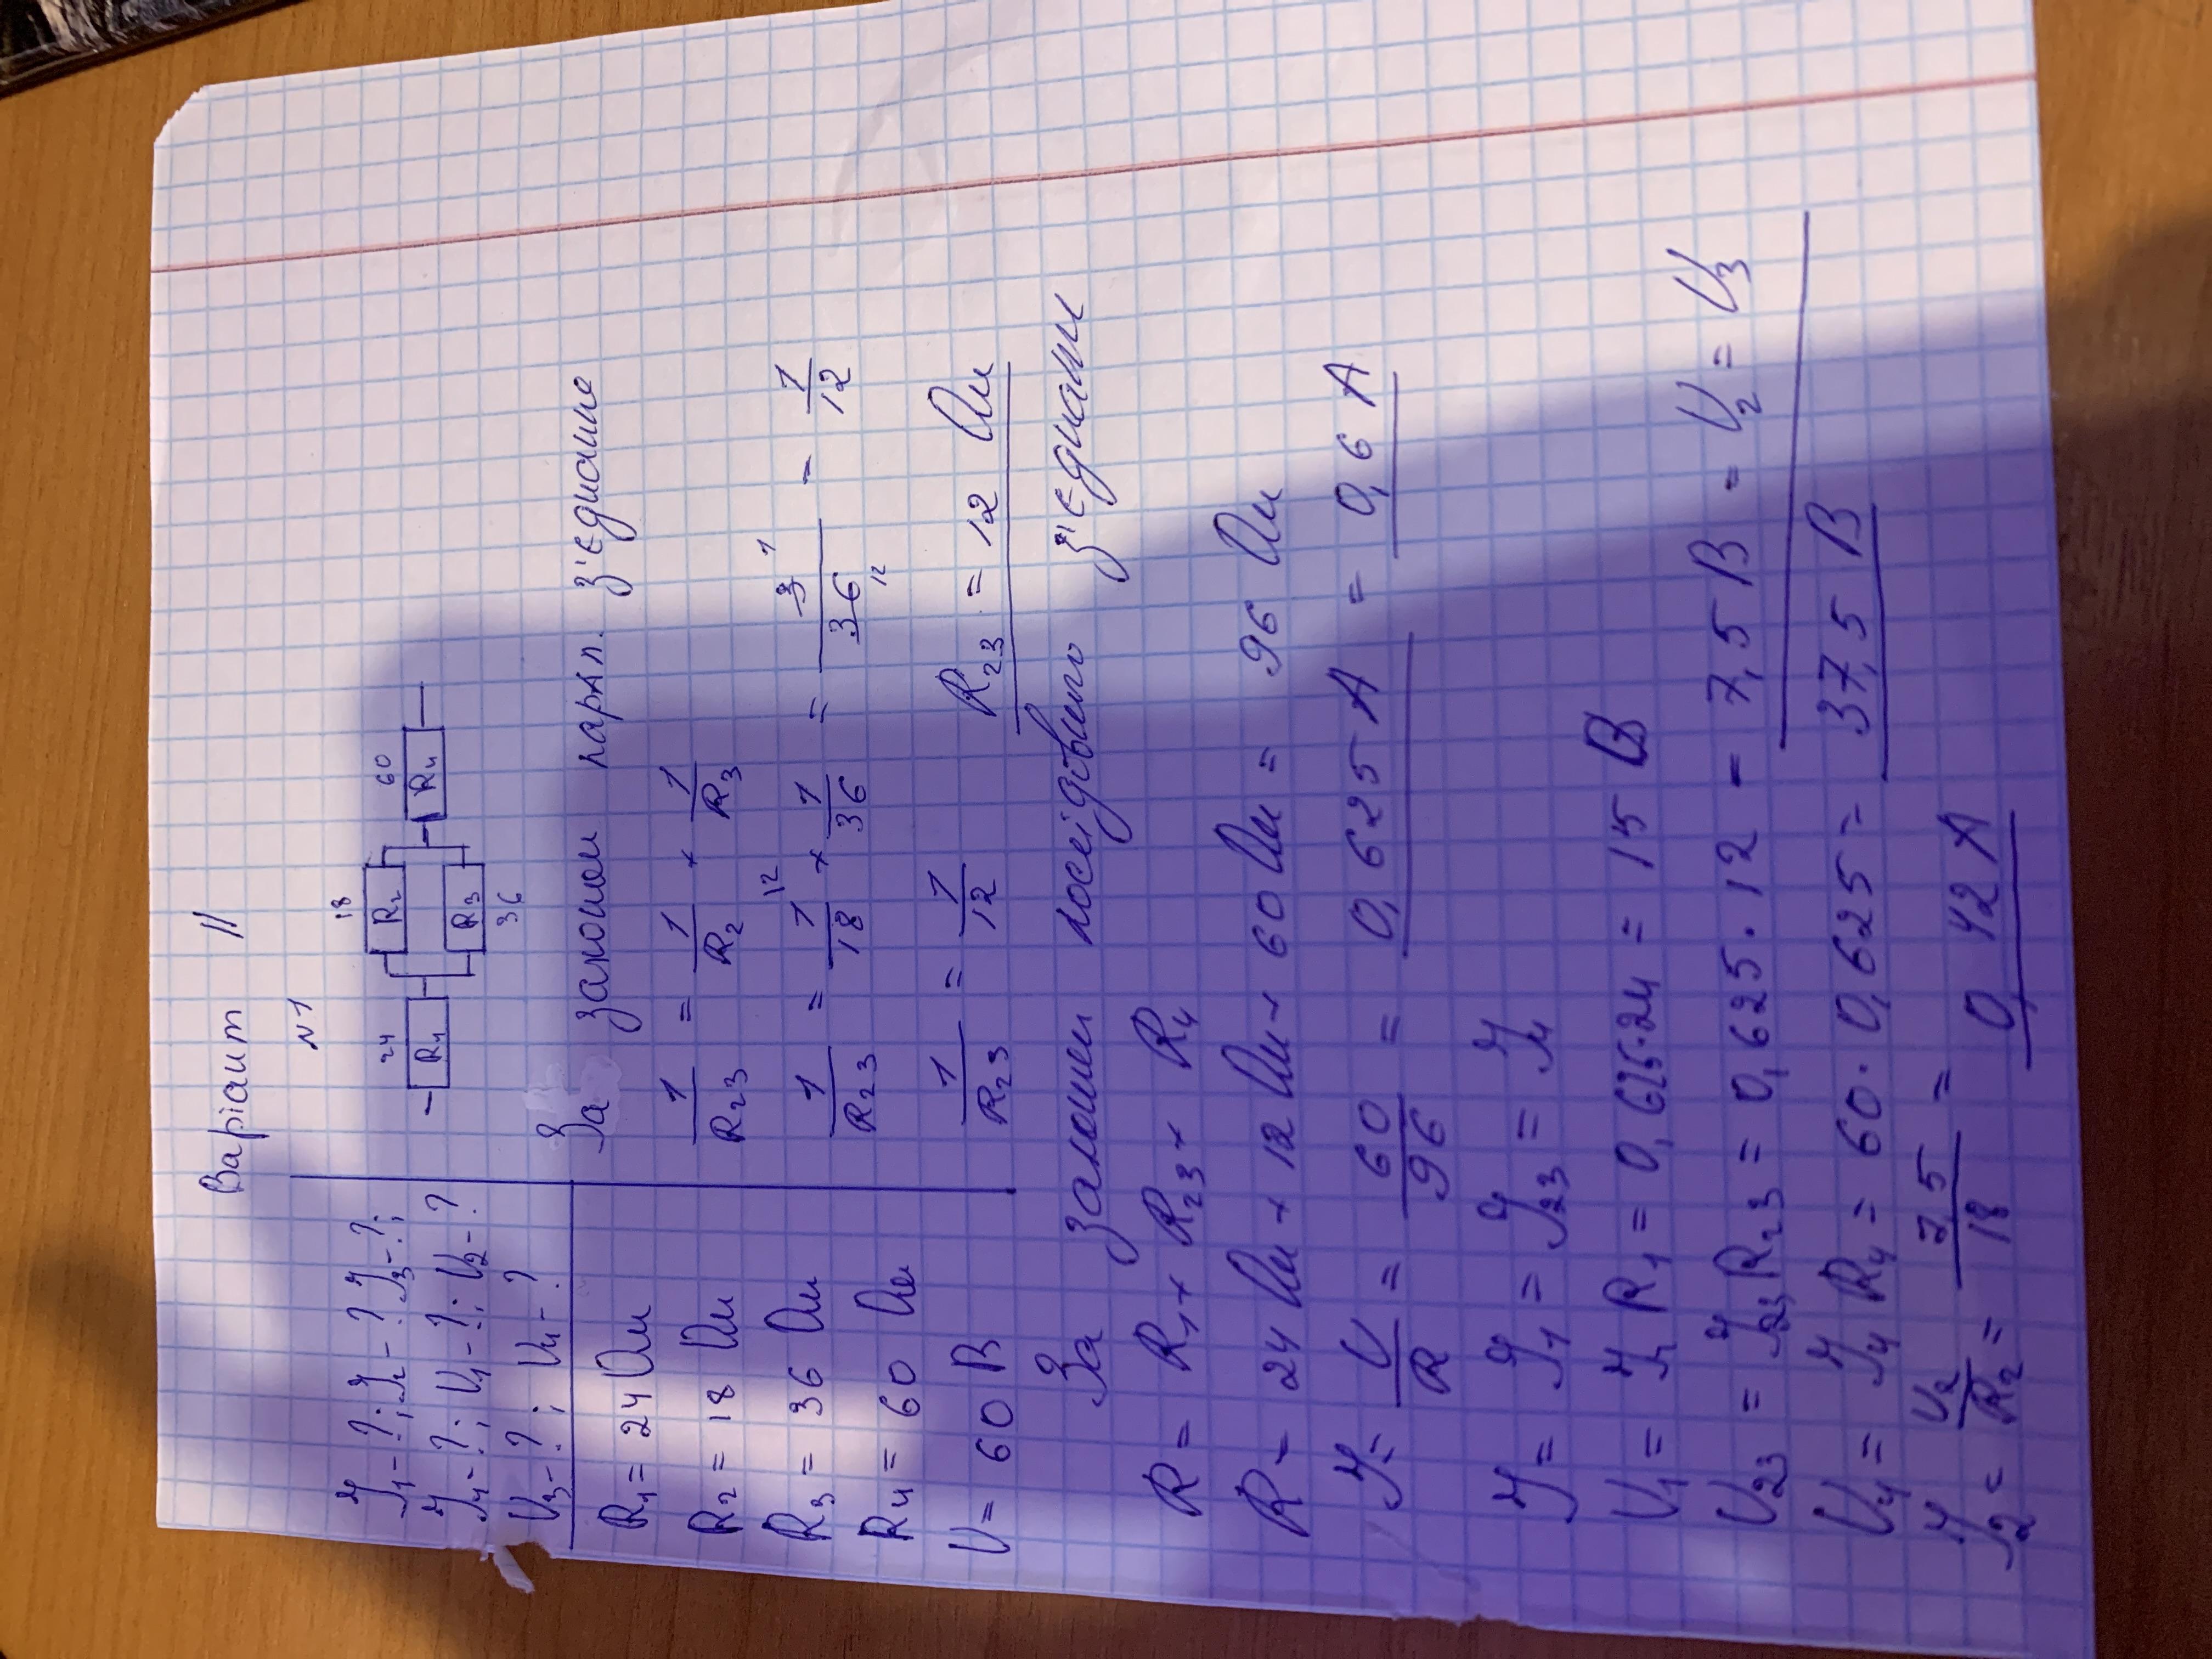 Варіант 11
N1
I₁-?; I₂-? I₃-?;
I₄-?; U₁-?; U₂-?
U₃-?; U₄-?
R₁= 24 Ом
R₂ = 18 Ом
R₃ = 36 Ом
R₄ = 60 Ом
U= 60 В
24 18 60
R₁ R₂ R₄
R₃
36
За законом парал. з'єднание
1/R₂₃ = 1/R₂ + 1/R₃
1/R₂₃ = 1/18 12 + 1/36 = 3 1/36 12 = 1/12
1/R₂₃ = 1/12 R₂₃ = 12 Ом
За законом посєідовного з'єднани
R= R₁+ R₂₃+ R₄
R= 24 Ом + 12 Ом + 60 Ом = 96 Ом
I= U/R = 60/96 = 0,625 А = 0,6 А
I= I₁ = I₂₃ = I₄
U₁= I₁ R₁ = 0,625·24 = 15 В
U₂₃ = I₂₃ R₂₃ = 0,625·12 = 7,5 В = U₂ = U₃
U₄= I₄ R₄ = 60·0,625 = 37,5 В
I₂= U₂/R₂ = 7,5/18 = 0,42 А